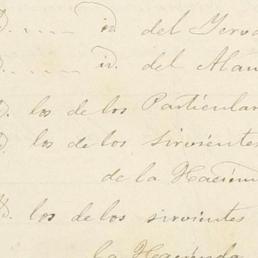 D. ..... id. del Yerv
D. ..... id. del Alam
D. los de los Particular
D. los de los sirvientes
de la Hacien
Yd. los de los sirvientes
la Hacienda